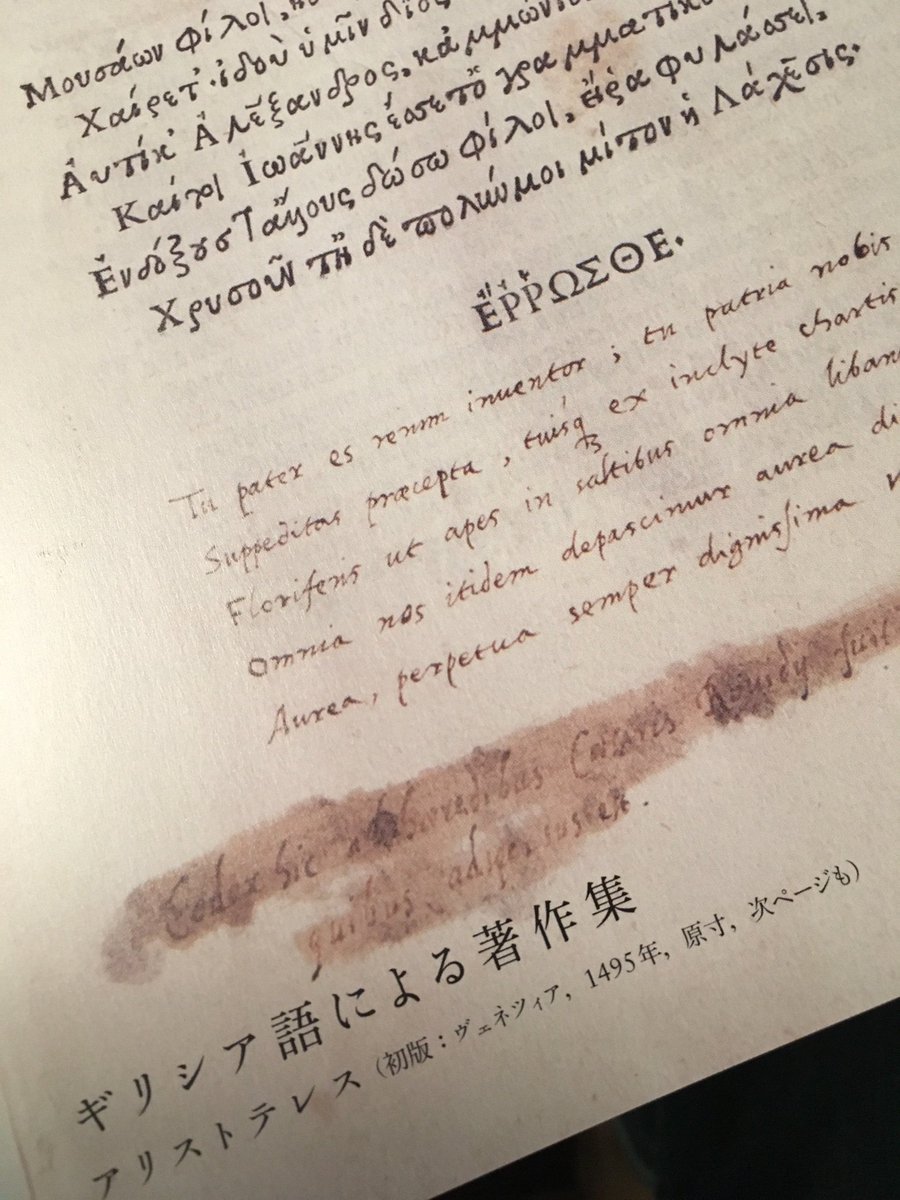 Μουσάων φίλοι,
Χαίρετ'. ἰδοὺ ὑμῖν δῖος
Αὐτίκ' Ἀλέξανδρος, κἀμμώνιος
Καίγοι Ἰωάννης ἕσπετο γραμματικὸς
φίλοι, φυλάσσει,
Χρυσοῦν τῇ δὲ πολιῷ μοι μίτον ἡ Λάχεσις.
ἘΡΡΩΣΘΕ.
Tu pater es rerum inuentor; tu patria nobis
Suppeditas præcepta, tuisq; ex inclyte chartis
Floriferis ut apes in saltibus omnia libant
Omnia nos itidem depascimur aurea di
Aurea, perpetua semper dignissima v
Codex hic ab haeredibus Cesaris fuit
quibus
ギリシア語による著作集
アリストテレス(初版:ヴェネツィア,1495年,原寸,次ページも)